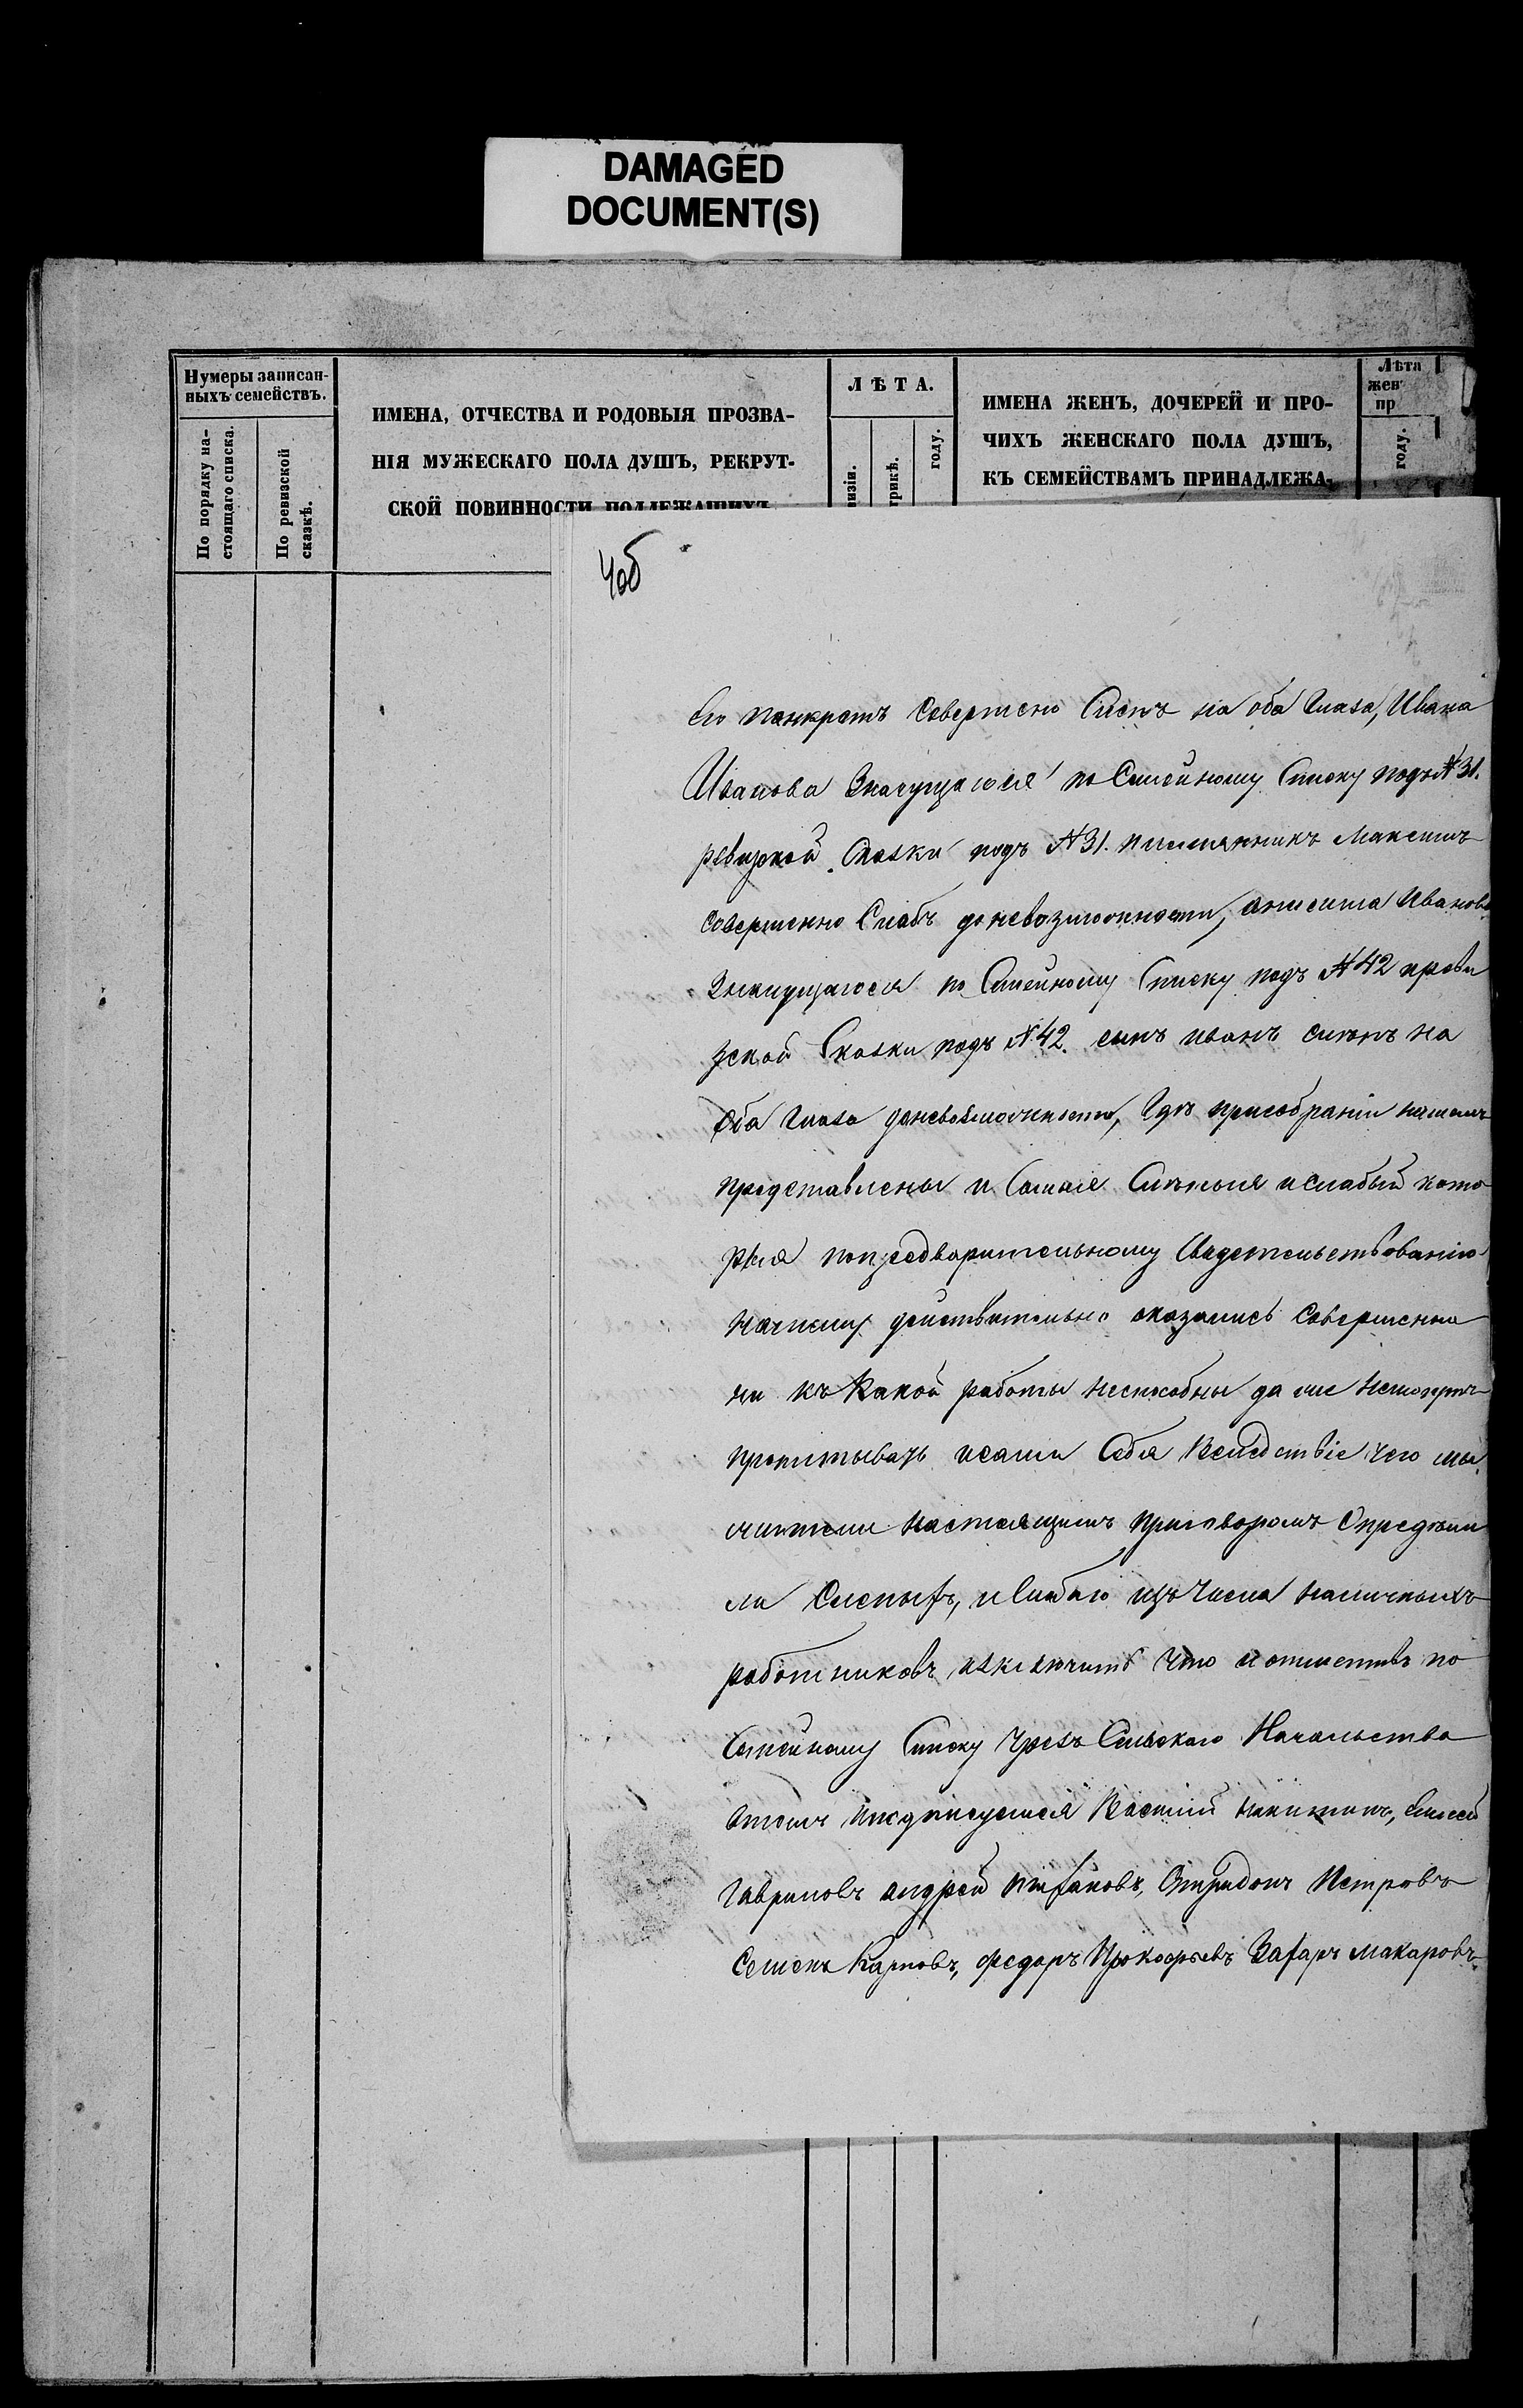 DAMAGED
DOCUMENT(S)
Нумеры записан-
ныхъ семействъ.
По порядку на-
стоящаго списка.
По ревизской
сказкѣ.
ИМЕНА, ОТЧЕСТВА И РОДОВЫЯ ПРОЗВА-
НІЯ МУЖЕСКАГО ПОЛА ДУШЪ, РЕКРУТ-
СКОЙ ПОВИННОСТИ ПОДЛЕЖАЩИХЪ
ЛѢТА.
изіи.
трикѣ.
году.
ИМЕНА ЖЕНЪ, ДОЧЕРЕЙ И ПРО-
ЧИХЪ ЖЕНСКАГО ПОЛА ДУШЪ,
КЪ СЕМЕЙСТВАМЪ ПРИНАДЛЕЖА-
Лѣта
жен
пр
году.
его панкратъ совершено слепъ на оба глаза, Ивана
Иванова Значущагося по Семейному Списку подъ №31.
ревизкой Сказки подъ №31. племянникъ Максимъ
совершенно Слабъ доневозможности, анисима Иванова
Значущагося по Семейному Списку подъ №42 ареви
зской Сказки подъ №42. сынъ иванъ слѣпъ на
оба глаза доневозможности, Гдѣ присобраніи нашемъ
представлены и Самыя Слѣпыя ислабый кото
рыя попредварительному Свидетельствованію
нашему действительно оказались Совершенна
ни къ Какой работы неспособны даже немогутъ
пропитывать исами Себя Вследствіе чего мы
жители настоящимъ приговоромъ Определи
ли Слепыхъ, и слабаго изъ Числа наличныхъ
работниковъ изключить Что и отметивъ по
Семейному Списку Чрезъ Сельскаго Начальства
втомъ подписуемся Василій никитинъ,
Гавриловъ андрей Спиридонъ Петровъ
Семенъ Карповъ, федоръ Прокофьевъ Захаръ макаровъ